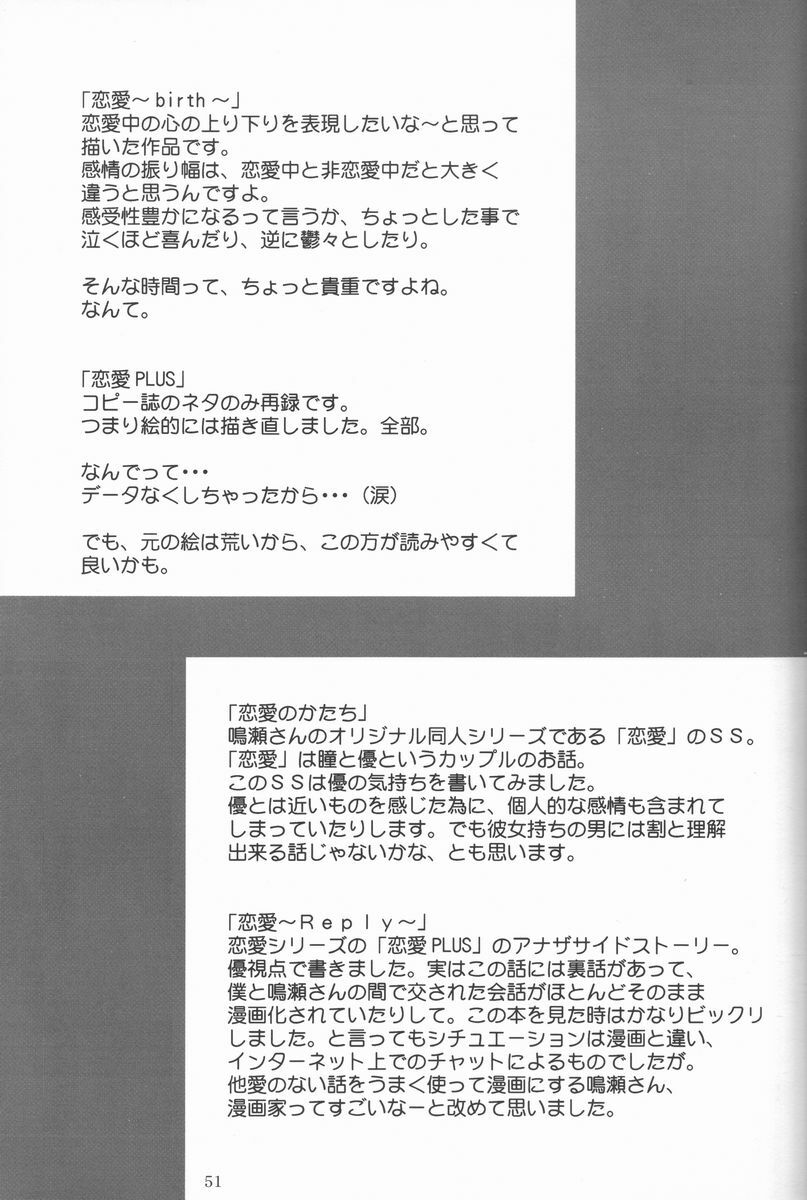 「恋愛～birth～」
恋愛中の心の上り下りを表現したいな～と思って
描いた作品です。
感情の振り幅は、恋愛中と非恋愛中だと大きく
違うと思うんですよ。
感受性豊かになるって言うか、ちょっとした事で
泣くほど喜んだり、逆に鬱々としたり。
そんな時間って、ちょっと貴重ですよね。
なんて。
「恋愛PLUS」
コピー誌のネタのみ再録です。
つまり絵的には描き直しました。全部。
なんでって･･･
データなくしちゃったから･･･（涙）
でも、元の絵は荒いから、この方が読みやすくて
良いかも。
「恋愛のかたち」
鳴瀬さんのオリジナル同人シリーズである「恋愛」のＳＳ。
「恋愛」は瞳と優というカップルのお話。
このＳＳは優の気持ちを書いてみました。
優とは近いものを感じた為に、個人的な感情も含まれて
しまっていたりします。でも彼女持ちの男には割と理解
出来る話じゃないかな、とも思います。
「恋愛～Ｒｅｐｌｙ～」
恋愛シリーズの「恋愛PLUS」のアナザサイドストーリー。
優視点で書きました。実はこの話には裏話があって、
僕と鳴瀬さんの間で交された会話がほとんどそのまま
漫画化されていたりして。この本を見た時はかなりビックリ
しました。と言ってもシチュエーションは漫画と違い、
インターネット上でのチャットによるものでしたが。
他愛のない話をうまく使って漫画にする鳴瀬さん、
漫画家ってすごいなーと改めて思いました。
51